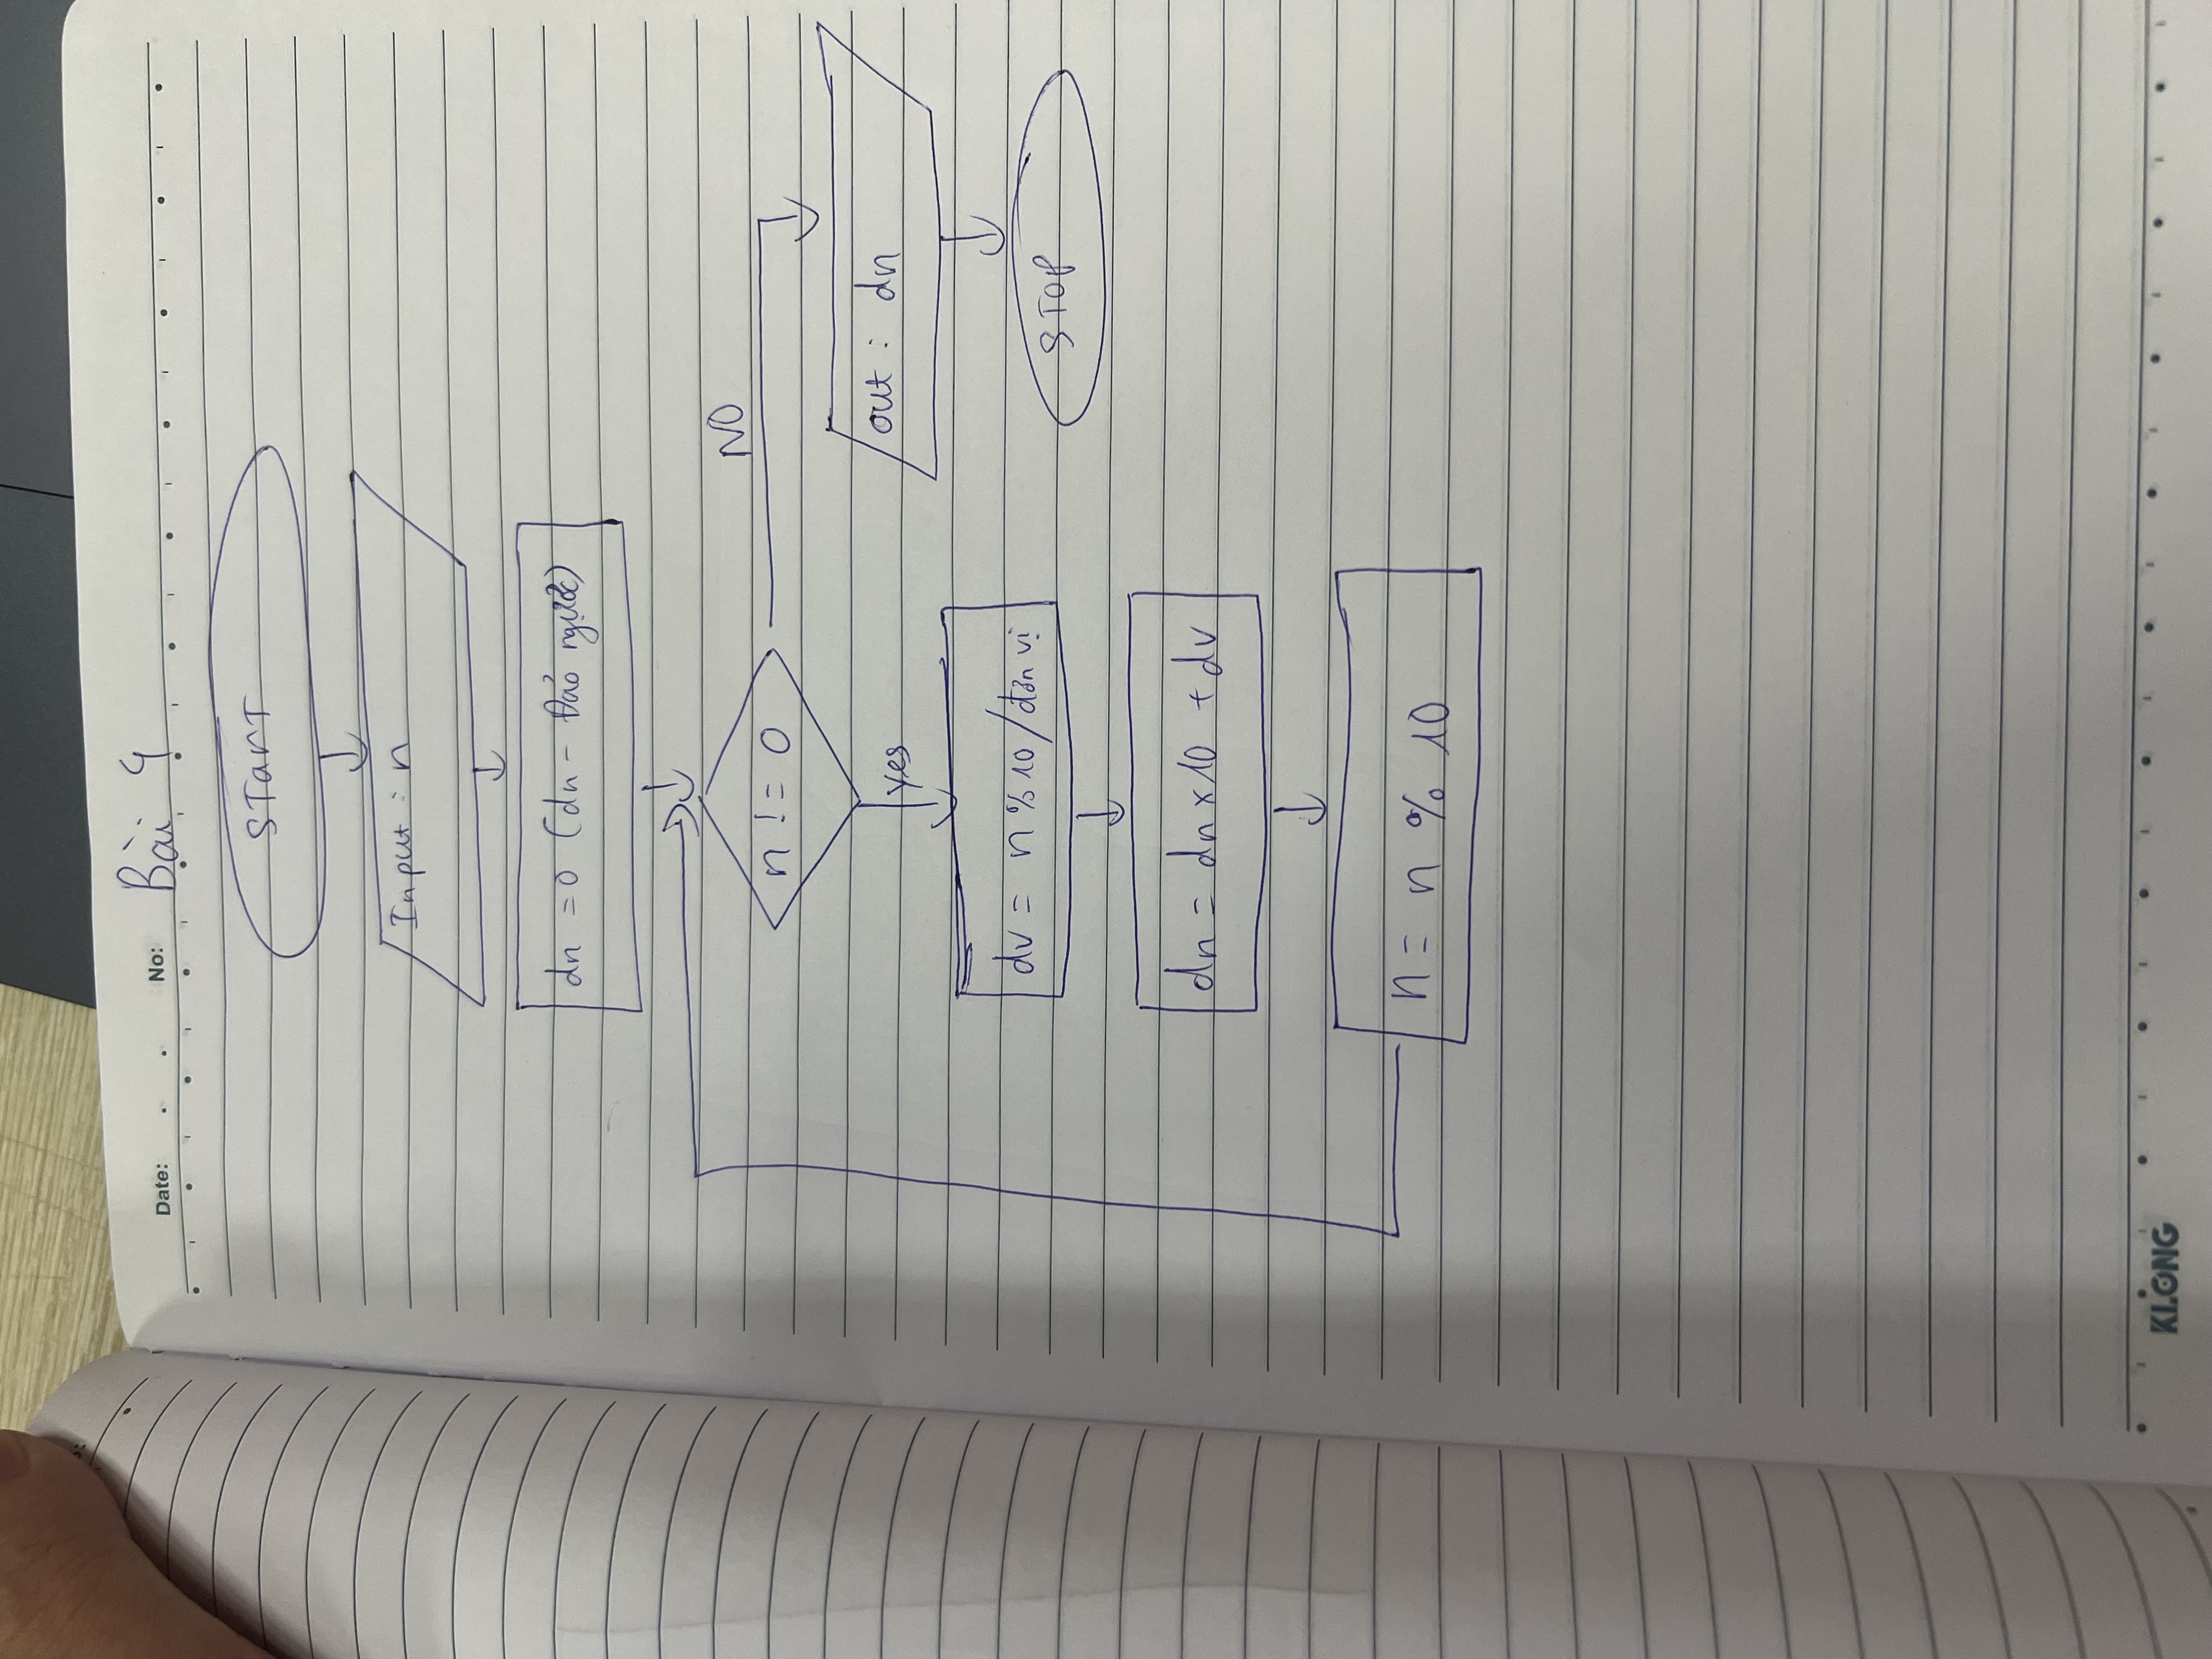 Date: . . No: Bài 4
START
Input : n
dn = 0 (dn - Đảo ngược)
n != 0
NO
yes
out : dn
dv = n % 10 / đơn vị
STOP
dn = dn x 10 + dv
n = n % 10
KLONG